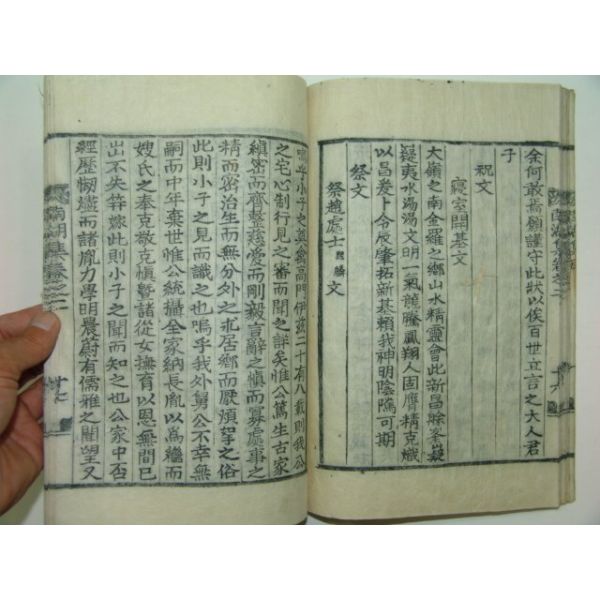 余何敢焉願謹守此狀以俟百世立言之大人君
子
祝文
寢室開基文
大嶺之南金羅之鄉山水精靈會此新昌賖峯嶷
嶷夷水湯湯文明一氣龍騰鳳翔人固膺精克熾
以昌卷卜令辰肇拓新基賴我神明陰隲可期
祭文
祭趙處士文
嗚乎小子之奥鴈高門伊玆二十有八載則我公
之宅心制行見之審而聞之詳矣惟公篤生古家
縝密而齊整慈愛而剛毅言辭之愼而寡處事之
精而密治生而無分外之求居鄉而厭煩挐之俗
此則小子之見而識之也嗚乎我外舅公不幸無
嗣而中年棄世惟公統攝全家納長胤以爲繼而
嫂氏之奉克敬克愼曁諸從女撫育以恩無間已
出不失笄嫁此則小子之聞而知之也公家中否
經歷惱𡒗而諸胤力學明農蔚有儒雅之聞望又
南湖集卷之二
十七
十六